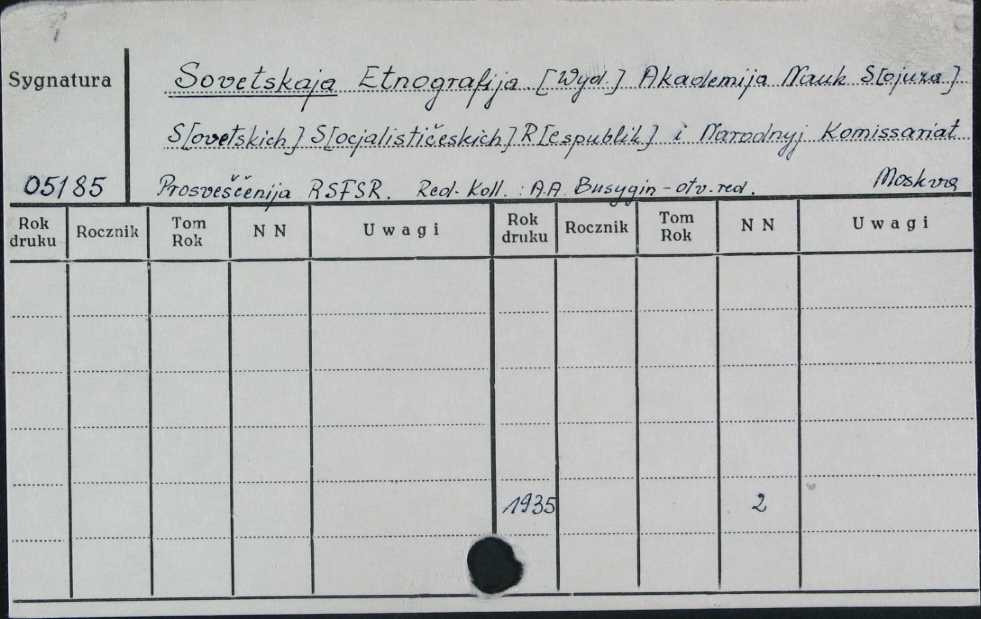 Sygnatura
Sovetskaja Etnografija. [Wyd.] Akademija Nauk S[ojuza]
S[ovetskich] S[ocjalističeskich] R[espublik] i Narodnyj Komissariat
05185 Prosveščenija RSFSR. Red. Koll. : A.A. Busygin - otv. red. Moskva
Rok druku Rocznik Tom Rok NN Uwagi Rok druku Rocznik Tom Rok NN Uwagi
1935 2